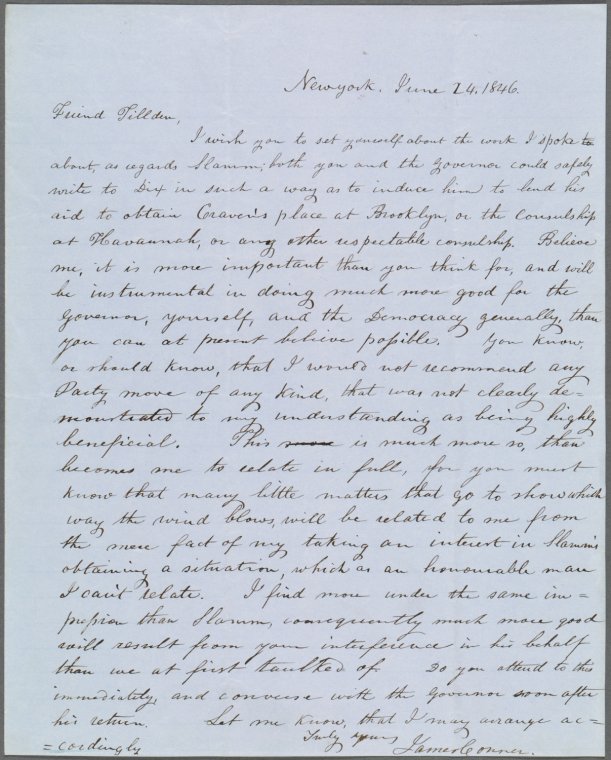 Newyork. June 24. 1846.
Friend Tillden,
I wish you to set yourself about the work I spoke to
about, as regards Slamm; both you and the Governor could safely
write to Dix in such a way as to induce him to lend his
aid to obtain Craven's place at Brooklyn, or the Consulship
at Havannah, or any other respectable consulship. Believe
me, it is more important than you think for, and will
be instrumental in doing much more good for the
Governor, yourself, and the Democracy generally, than
you can at present believe possible. You know,
or should know, that I would not recommend any
Party move of any kind, that was not clearly de=
monstrated to my understanding as being highly
beneficial. This move is much more so, than
becomes me to relate in full, for you must
know that many little matters that go to show which
way the wind blows, will be related to me from
the mere fact of my taking an interest in Slamm's
obtaining a situation, which as an honourable man
I can't relate. I find more under the same im=
pression than Slamm, consequently much more good
will result from your interference in his behalf
than we at first taulked of. Do you attend to this
immediately, and converse with the Governor soon after
his return. Let me know, that I may arrange ac=
=cordingly
Truly yours
James Conner.